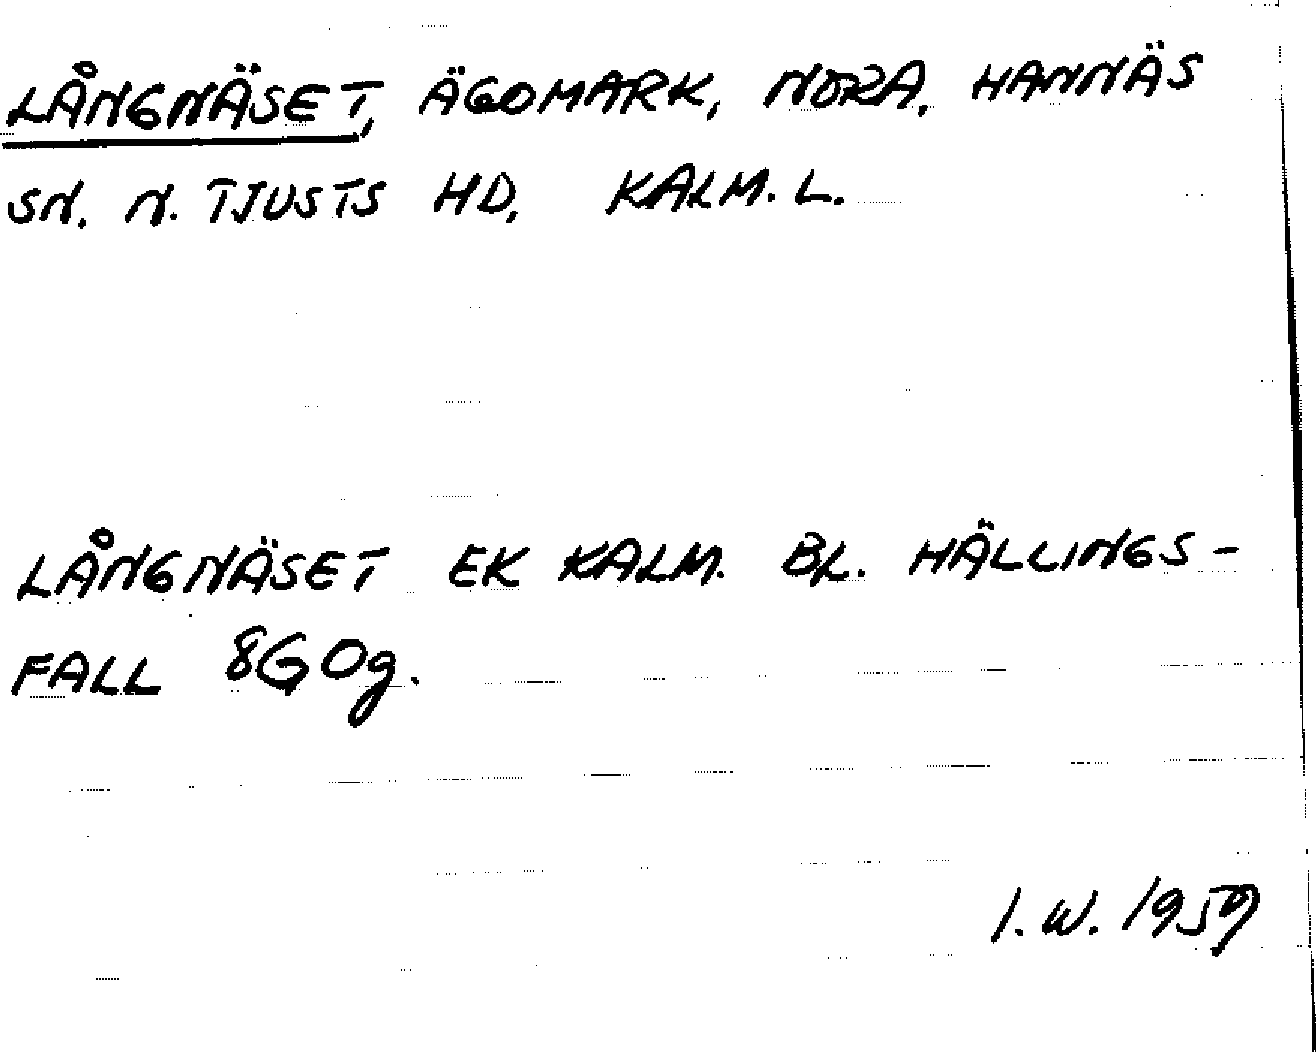 LÅNGNÄSET, ÄGOMARK, NORA, HANNÄS
SN. N. TJUSTS HD, KALM. L.
LÅNGNÄSET EK KALM. BL. HÄLLINGS-
FALL 8G Og.
I. W. 1959